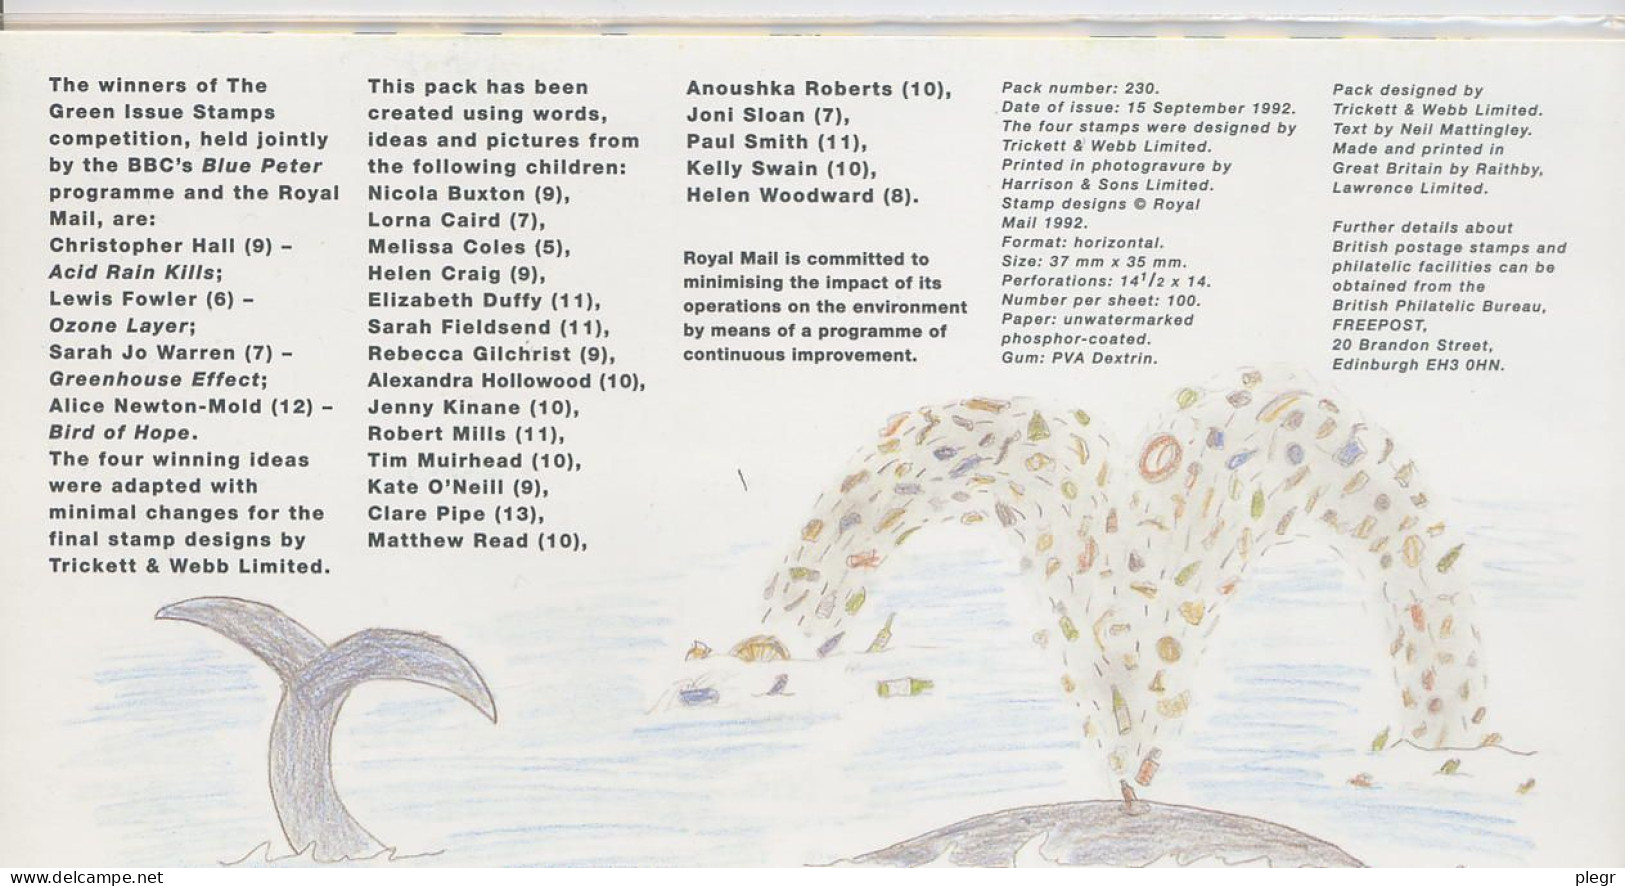 The winners of The
Green Issue Stamps
competition, held jointly
by the BBC's Blue Peter
programme and the Royal
Mail, are:
Christopher Hall (9) –
Acid Rain Kills;
Lewis Fowler (6) –
Ozone Layer;
Sarah Jo Warren (7) –
Greenhouse Effect;
Alice Newton-Mold (12) –
Bird of Hope.
The four winning ideas
were adapted with
minimal changes for the
final stamp designs by
Trickett & Webb Limited.
This pack has been
created using words,
ideas and pictures from
the following children:
Nicola Buxton (9),
Lorna Caird (7),
Melissa Coles (5),
Helen Craig (9),
Elizabeth Duffy (11),
Sarah Fieldsend (11),
Rebecca Gilchrist (9),
Alexandra Hollowood (10),
Jenny Kinane (10),
Robert Mills (11),
Tim Muirhead (10),
Kate O'Neill (9),
Clare Pipe (13),
Matthew Read (10),
Anoushka Roberts (10),
Joni Sloan (7),
Paul Smith (11),
Kelly Swain (10),
Helen Woodward (8).
Royal Mail is committed to
minimising the impact of its
operations on the environment
by means of a programme of
continuous improvement.
Pack number: 230.
Date of issue: 15 September 1992.
The four stamps were designed by
Trickett & Webb Limited.
Printed in photogravure by
Harrison & Sons Limited.
Stamp designs © Royal
Mail 1992.
Format: horizontal.
Size: 37 mm x 35 mm.
Perforations: 14 1/2 x 14.
Number per sheet: 100.
Paper: unwatermarked
phosphor-coated.
Gum: PVA Dextrin.
Pack designed by
Trickett & Webb Limited.
Text by Neil Mattingley.
Made and printed in
Great Britain by Raithby,
Lawrence Limited.
Further details about
British postage stamps and
philatelic facilities can be
obtained from the
British Philatelic Bureau,
FREEPOST,
20 Brandon Street,
Edinburgh EH3 0HN.
www.delcampe.net
plegr